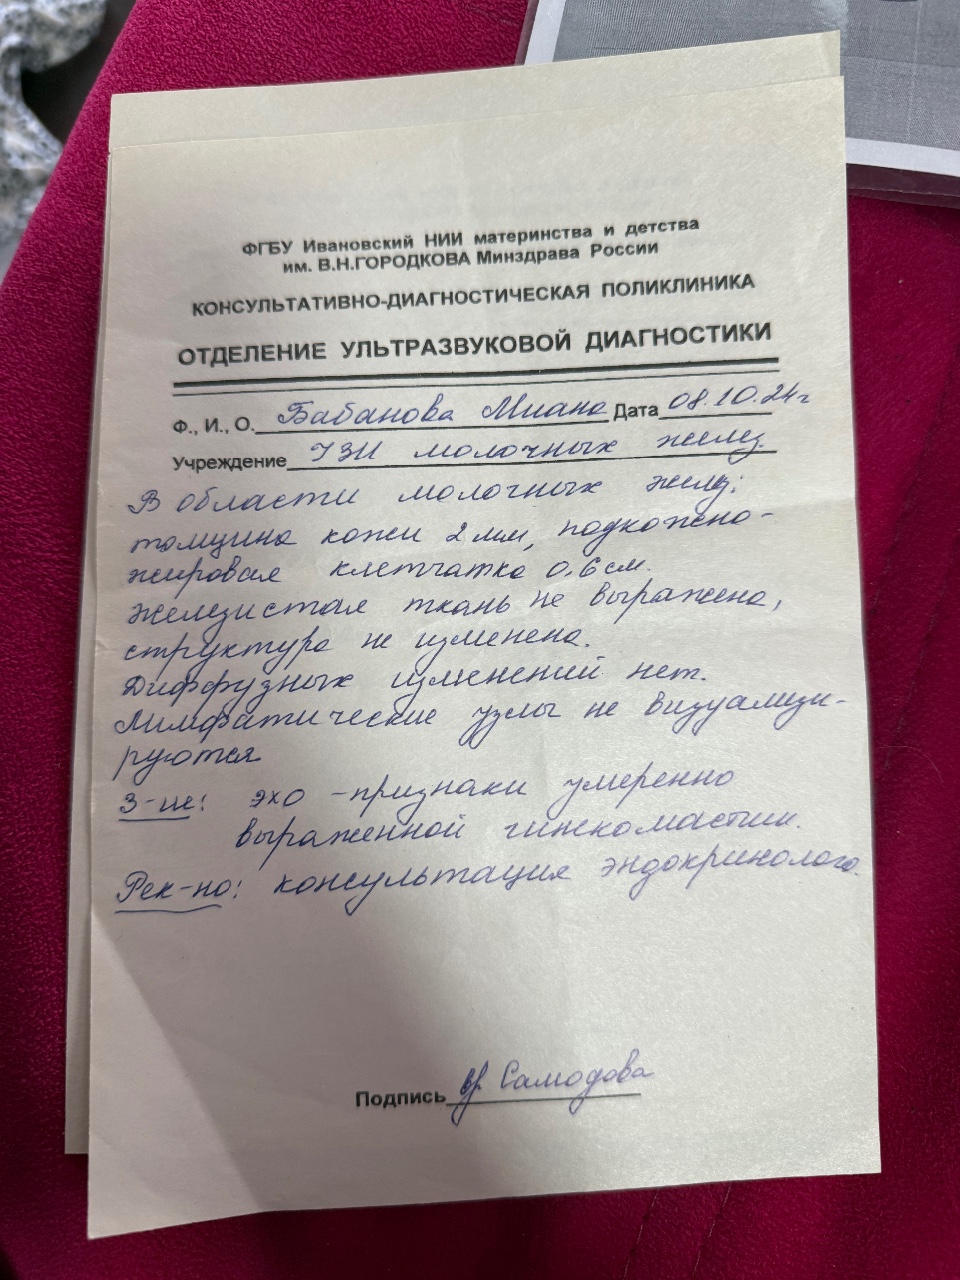 ФГБУ Ивановский НИИ материнства и детства
им. В.Н.ГОРОДКОВА Минздрава России
КОНСУЛЬТАТИВНО-ДИАГНОСТИЧЕСКАЯ ПОЛИКЛИНИКА
ОТДЕЛЕНИЕ УЛЬТРАЗВУКОВОЙ ДИАГНОСТИКИ
Ф., И., О. Бабанова Миана Дата 08.10.24г
Учреждение УЗИ молочных желез
В области молочных желез:
толщина кожи 2 мм, подкожно-
жировая клетчатка 0,6 см.
Железистая ткань не выражена,
структура не изменена.
Диффузных изменений нет.
Лимфатические узлы не визуализи-
руются
З-ие: эхо-признаки умеренно
выраженной гинекомастии.
Рек-но: консультация эндокринолога.
Подпись вр Самодова